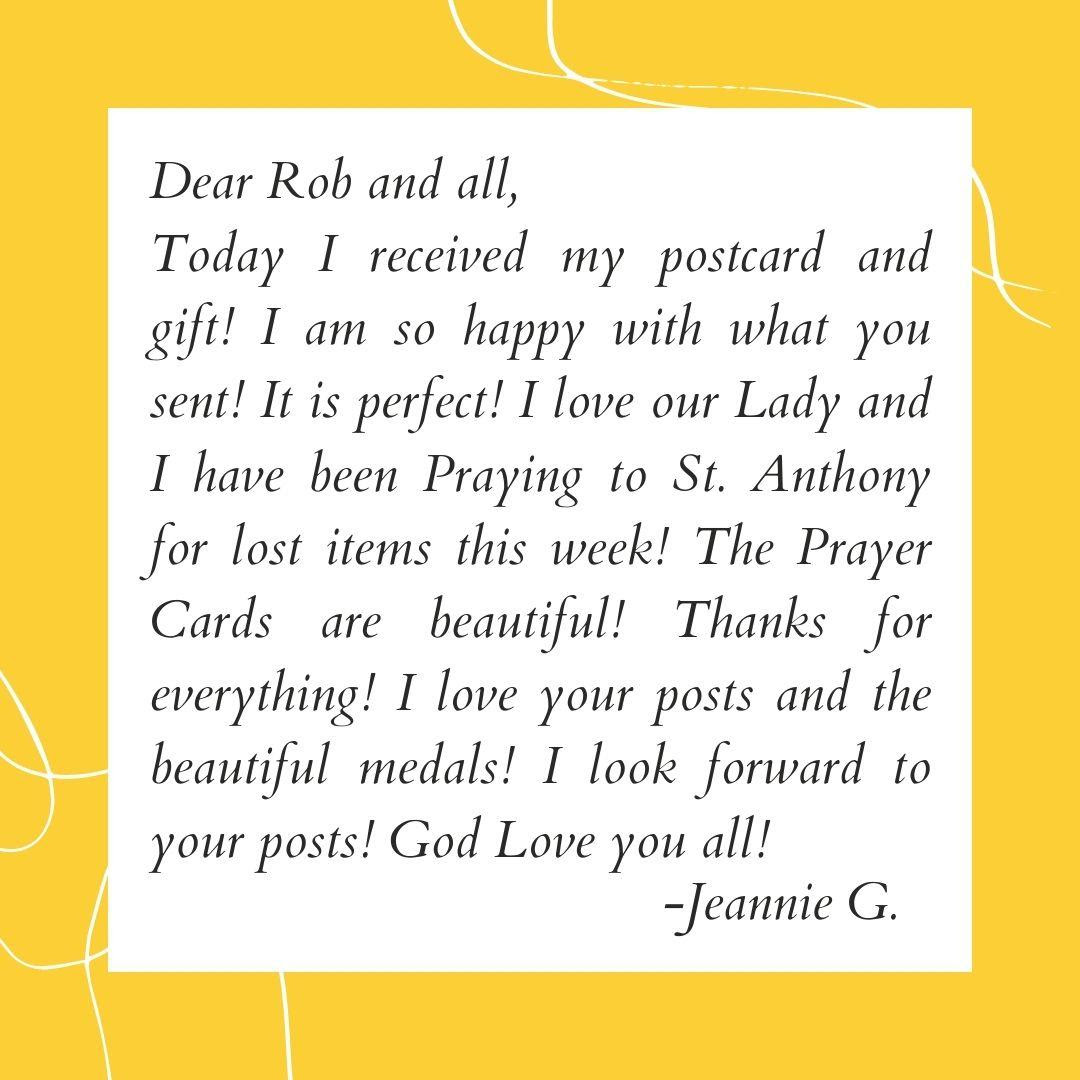 Dear Rob and all,
Today I received my postcard and
gift! I am so happy with what you
sent! It is perfect! I love our Lady and
I have been Praying to St. Anthony
for lost items this week! The Prayer
Cards are beautiful! Thanks for
everything! I love your posts and the
beautiful medals! I look forward to
your posts! God Love you all!
-Jeannie G.